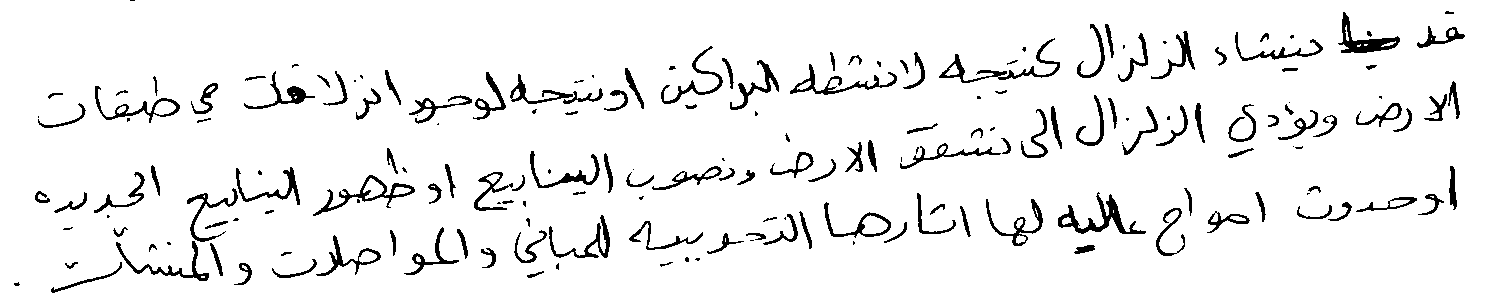 قد ينشاء الزلزال كنتيجه لانشطه البراكين او نتيجه لوجود انزلاقات في طبقات
الارض ويؤدي الزلزال الى تشقق الارض ونصوب الينابيع او ظهور الينابيع الجديده
او حدوث امواج عاليه لها اثارها التخريبيه للمباني والمواصلات والمنشآت .